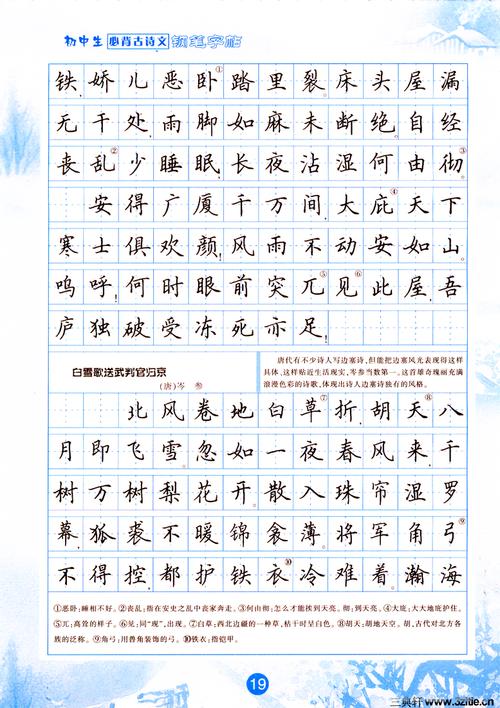 初中生 必背古诗文 钢笔字帖
铁娇儿恶卧①踏里裂床头屋漏
无干处雨脚如麻未断绝自经
丧乱②少睡眠长夜沾湿何由彻③
安得广厦千万间大庇④天下
寒士俱欢颜!风雨不动安如山
呜呼!何时眼前突兀⑤见⑥此屋吾
庐独破受冻死亦足!
白雪歌送武判官归京
(唐)岑 参
唐代有不少诗人写边塞诗,但能把边塞风光表现得这样
具体,这样贴近生活现实,岑参当数第一。这首雄奇瑰丽充满
浪漫色彩的诗歌,体现出诗人边塞诗独有的风格。
北风卷地白草⑦折,胡天⑧八
月即飞雪。忽如一夜春风来,千
树万树梨花开。散入珠帘湿罗
幕,狐裘不暖锦衾薄。将军角弓⑨
不得控,都护铁衣⑩冷难着。瀚海
①恶卧:睡相不好。②丧乱:指在安史之乱中丧家奔走。③何由彻:怎么才能挨到天亮。彻:到天亮。④大庇:大大地庇护住。
⑤兀:高耸的样子。⑥见:同“现”,出现。⑦白草:西北边疆的一种草,枯干时呈白色。⑧胡天:胡地天空。胡,古代对北方各
族的泛称。⑨角弓:用兽角装饰的弓。⑩铁衣:指铠甲。
19
三典轩 www.3zitie.cn